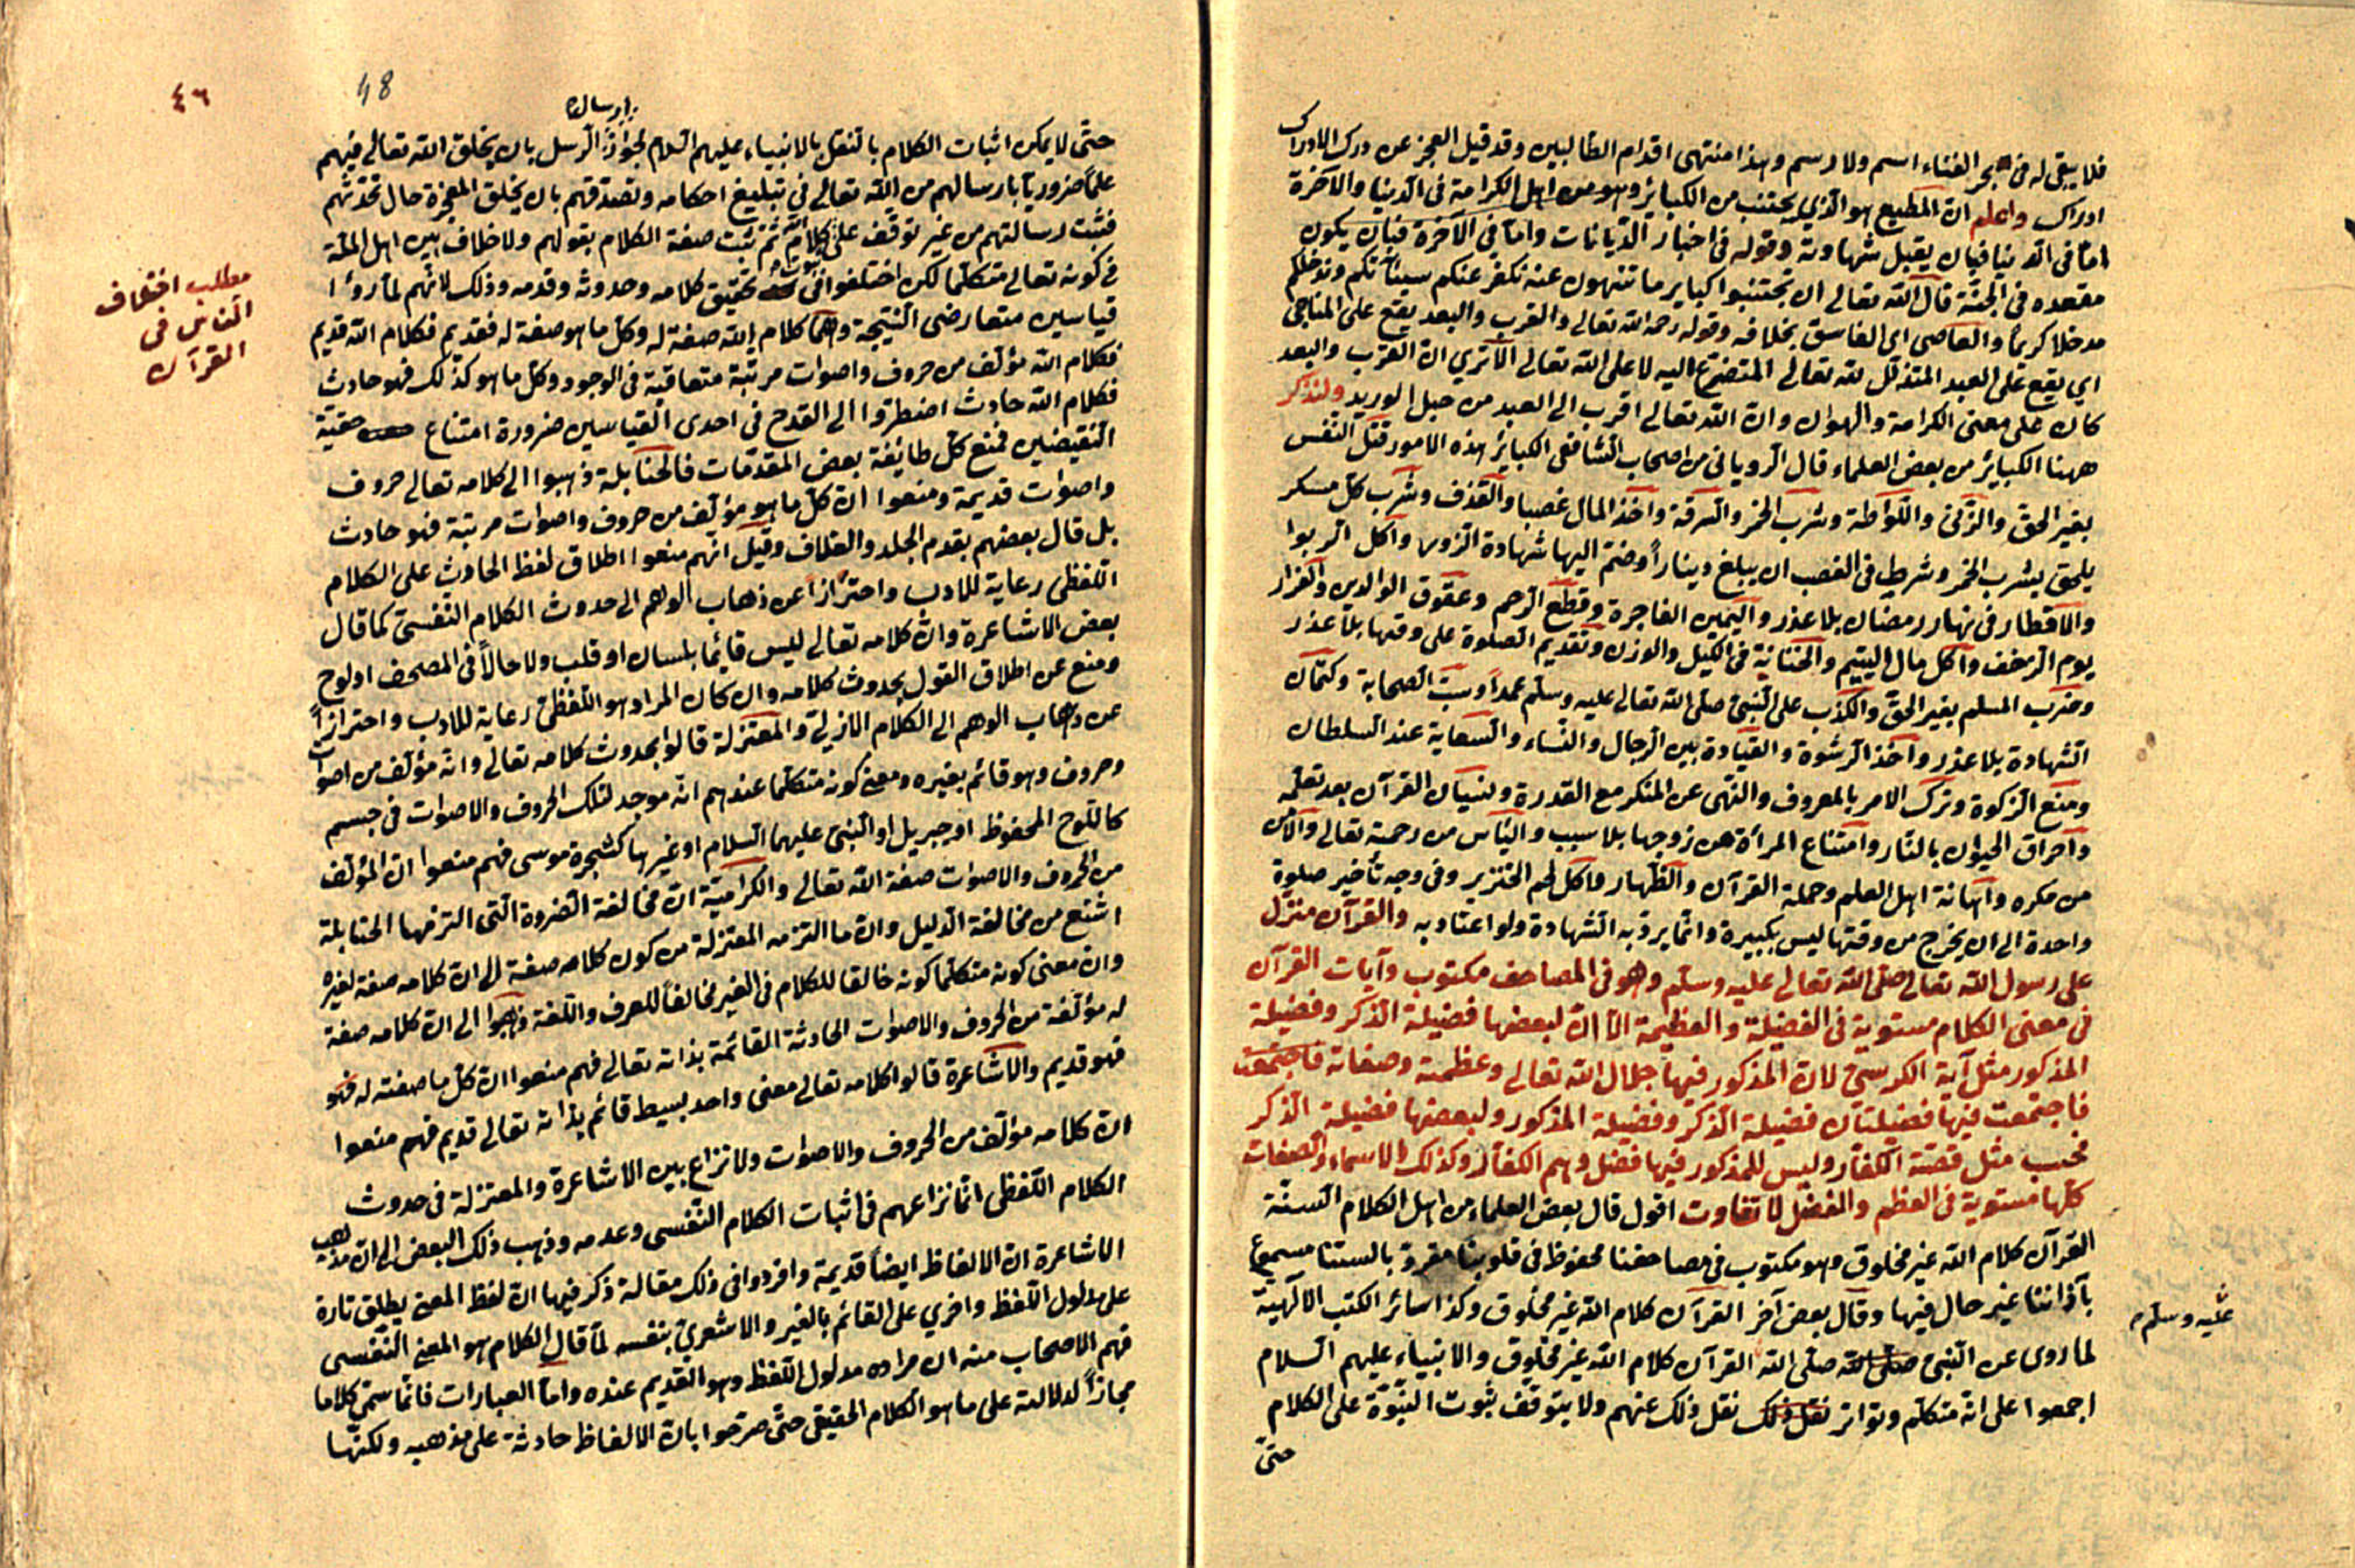 فلا يبقى له في بحر الفناء اسم ولا رسم وهذا منتهى اقدام الطالبين وقد قيل العجز عن درك الادراك
ادراك واعلم ان المطيع هو الذي يجتنب من الكبائر وهو من اهل الكرامة في الدنيا والآخرة
امّا في الدنيا فبان يقبل شهادته وقوله في اخبار الديانات وامّا في الآخرة فبان يكون
مقعده في الجنّة قال الله تعالى ان تجتنبوا كباير ما تنهون عنه نكفر عنكم سيئاتكم وندخلكم
مدخلا كريما والعاصى اى الفاسق بخلافه وقوله رحمه الله تعالى والقرب والبعد يقع على المناجى
اي يقع على العبد المتذلل لله تعالى المتضرع اليه لا على الله تعالى الا تري ان القرب والبعد
كان على معنى الكرامة والهوان وان الله تعالى اقرب الى العبد من حبل الوريد ولنذكر
ههنا الكبائر من بعض العلماء قال الرويانى من اصحاب الشافعى الكبائر هذه الامور قتل النفس
بغير الحق والزنى واللواطة وشرب الخمر والسرقة واخذ المال غصبا والقذف وشرب كل مسكر
يلحق بشرب الخمر وشرط في الغصب ان يبلغ دينارا وضم اليها شهادة الزور واكل الربوا
والافطار في نهار رمضان بلا عذر واليمين الفاجرة وقطع الرحم وعقوق الوالدين والفرار
يوم الزحف واكل مال اليتيم والخيانة في الكيل والوزن وتقديم الصلوة على وقتها بلا عذر
وضرب المسلم بغير الحق والكذب على النبى صلى الله تعالى عليه وسلم عمدا وسب الصحابة وكتمان
الشهادة بلا عذر واخذ الرشوة والقيادة بين الرجال والنساء والسعاية عند السلطان
ومنع الزكوة وترك الامر بالمعروف والنهى عن المنكر مع القدرة ونسيان القرآن بعد تعلمه
واحراق الحيوان بالنار وامتناع المرأة من زوجها بلا سبب والياس من رحمة تعالى والامن
من مكره واهانة اهل العلم وحملة القرآن والظهار واكل لحم الخنزير وفى وجه تأخير صلوة
واحدة الى ان يخرج من وقتها ليس بكبيرة وانما يرد به الشهادة ولو اعتاد به والقرآن منزّل
على رسول الله تعالى صلى الله تعالى عليه وسلم وهو في المصاحف مكتوب وآيات القرآن
في معنى الكلام مستوية في الفضيلة والعظيمة الا ان لبعضها فضيلة الذكر وفضيلة
المذكور مثل آية الكرسي لان المذكور فيها جلال الله تعالى وعظمته وصفاته فاجتمعت
فاجتمعت فيها فضيلتان فضيلة الذكر وفضيلة المذكور ولبعضها فضيلة الذكر
فحسب مثل قصة الكفار وليس للمذكور فيها فضل وهم الكفار وكذلك الاسماء والصفات
كلها مستوية في العظم والفضل لا تفاوت اقول قال بعض العلماء من اهل الكلام السنة
القرآن كلام الله غير مخلوق وهو مكتوب في مصاحفنا محفوظ في قلوبنا مقروّ بالستنا مسموع
بآذاننا غير حال فيها وقال بعض آخر القرآن كلام الله غير مخلوق وكذا سائر الكتب الالهية
لما روى عن النبى صلى الله صلى الله القرآن كلام الله غير مخلوق والانبياء عليهم السلام
عليه وسلم
اجمعوا على انه متكلم وتواتر نقل ذلك نقل ذلك عنهم ولا يتوقف ثبوت النبوة على الكلام
حتى
٤٦
48
ارساله
حتى لا يمكن اثبات الكلام بالنقل بالانبياء عليهم السلام لجواز الرسل بان يخلق الله تعالى فيهم
علما ضروريا بارسالهم من الله تعالى في تبليغ احكامه وتصدقهم بان يخلق المعجزة حال تحديهم
فثبت رسالتهم من غير توقف على كلام الله ثم ثبت صفة الكلام بقولهم ولا خلاف بين اهل الملة
في كونه تعالى متكلما لكن اختلفوا في تحقيق كلامه وحدوثه وقدمه وذلك لانهم لما رؤا
مطلب اختلاف
الناس في
القرآن
قياسين متعارضى النتيجة وهما كلام الله صفة له وكل ما هو صفة له فقديم فكلام الله قديم
فكلام الله مؤلف من حروف واصوات مرتبة متعاقبة في الوجود وكل ما هو كذلك فهو حادث
فكلام الله حادث اضطروا الى القدح فى احدى القياسين ضرورة امتناع حقية
النقيضين فمنع كل طائفة بعض المقدمات فالحنابلة ذهبوا الى كلامه تعالى حروف
واصوات قديمة ومنعوا ان كل ما هو مؤلف من حروف واصوات مرتبة فهو حادث
بل قال بعضهم بقدم الجلد والغلاف وقيل انهم منعوا اطلاق لفظ الحادث على الكلام
اللفظى رعاية للادب واحترازا عن ذهاب الوهم الى حدوث الكلام النفسى كما قال
بعض الاشاعرة وان كلامه تعالى ليس قائما بلسان او قلب ولا حالا في المصحف او لوح
ومنع عن اطلاق القول بحدوث كلامه وان كان المراد هو اللفظى رعاية للادب واحترازا
عن ذهاب الوهم الى الكلام الازلى والمعتزلة قالوا بحدوث كلامه تعالى وانه مؤلف من اصوات
وحروف وهو قائم بغيره ومعنى كونه متكلما عندهم انه موجد لتلك الحروف والاصوات في جسم
كاللوح المحفوظ او جبريل او النبى عليهما السلام او غيرها كشجرة موسى فهم منعوا ان المؤلف
من الحروف والاصوات صفة الله تعالى والكرامية ان مخالفة الضروة التى التزمها الحنابلة
اشنع من مخالفة الدليل وان ما التزمه المعتزلة من كون كلامه صفة الى ان كلامه صفة لغيره
وان معنى كونه متكلما كونه خالقا للكلام في الغير مخالفا للعرف واللغة ذهبوا الى ان كلامه صفة
له مؤلفة من الحروف والاصوات الحادثة القائمة بذاته تعالى فهم منعوا ان كل ما صفته له فهو
فهو قديم والاشاعرة قالوا كلامه تعالى معنى واحد بسيط قائم بذاته تعالى قديم فهم منعوا
ان كلامه مؤلف من الحروف والاصوات ولا نزاع بين الاشاعرة والمعتزلة في حدوث
الكلام اللفظى انما نزاعهم في اثبات الكلام النفسى وعدمه وذهب ذلك البعض الى ان مذهب
الاشاعرة ان الالفاظ ايضا قديمة وافردوا فى ذلك مقالة ذكر فيها ان لفظ المعنى يطلق تارة
على مدلول اللفظ واخري على القائم بالغير والاشعري بنفسه لما قال الكلام هو المعنى النفسى
فهم الاصحاب منه ان مراده مدلول اللفظ وهو القديم عنده واما العبارات فانما سمى كلاما
مجازا لدلالته على ما هو الكلام الحقيقى حتى صرحوا بان الالفاظ حادثة على مذهبه ولكنها